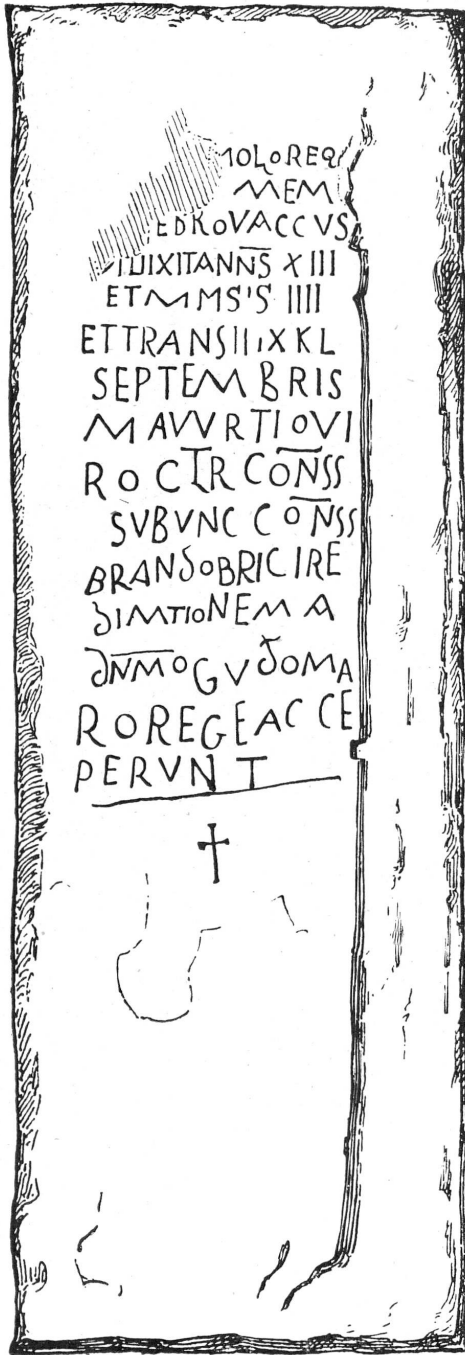 MEM
EDROVACCVS
VIXIT ANNS XIII
ET M MS'S IIII
ET TRANSIIT IX KL
SEPTEMBRIS
MAVVRTIO VI
RO CTR CONSS
SVB VNC CONSS
BRANDOBRICI RE
DIMTIONEM A
DNM O GVDOMA
RO REGE ACCE
PERVNT